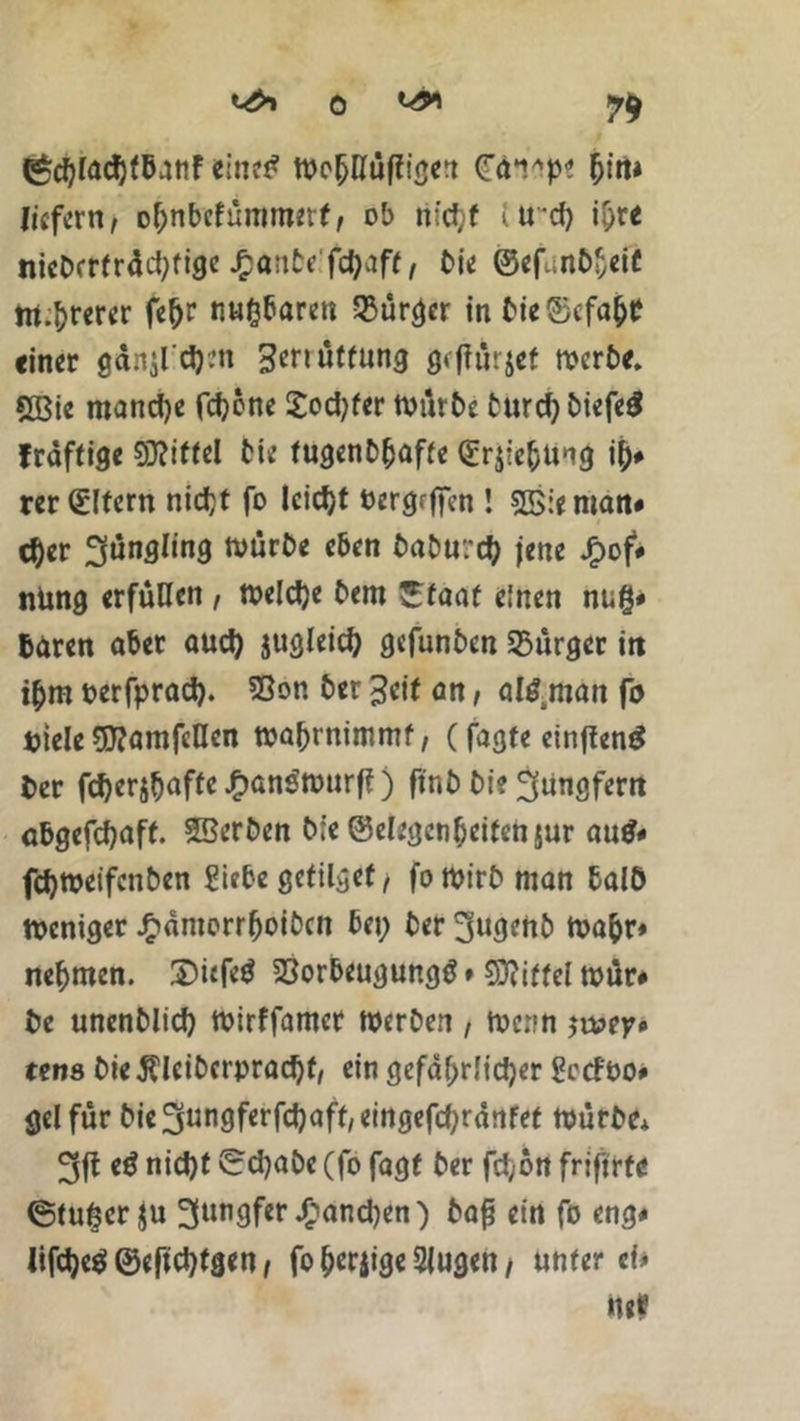 o 79
Schlachtbank eines wohllüstigen Canape hin-
liefern, ohnbekümmert, ob nicht durch ihre
niederträchtige Handelschaft, die Gesundheit
mehrerer sehr nutzbaren Bürger in die Gefahr
einer gänzlichen Zerrüttung gestürzet werde.
Wie manche schöne Tochter würde durch dieses
kräftige Mittel die tugendhafte Erziehung ih-
rer Eltern nicht so leicht vergessen! Wie man-
cher Jüngling würde eben dadurch jene Hof-
nung erfüllen, welche dem Staat einen nutz-
baren aber auch zugleich gesunden Bürger in
ihm versprach. Von der Zeit an, als man so
viele Mamsellen wahrnimmt, (sagte einstens
der scherzhafte Hanswurst) sind die Jungfern
abgeschaft. Werden die Gelegenheiten zur aus-
schweifenden Liebe getilget, so wird man bald
weniger Hämorrhoiden bey der Jugend wahr-
nehmen. Dieses Vorbeugungs-Mittel wür-
de unendlich wirksamer werden, wenn zwey-
tens die Kleiderpracht, ein gefährlicher Lockvo-
gel für die Jungferschaft, eingeschränket würde.
Ist es nicht Schade (so sagt der schön frisirte
Stutzer zu Jungfer Hanchen) daß ein so eng-
lisches Gesichtgen, so herzige Augen, unter ei-
ner